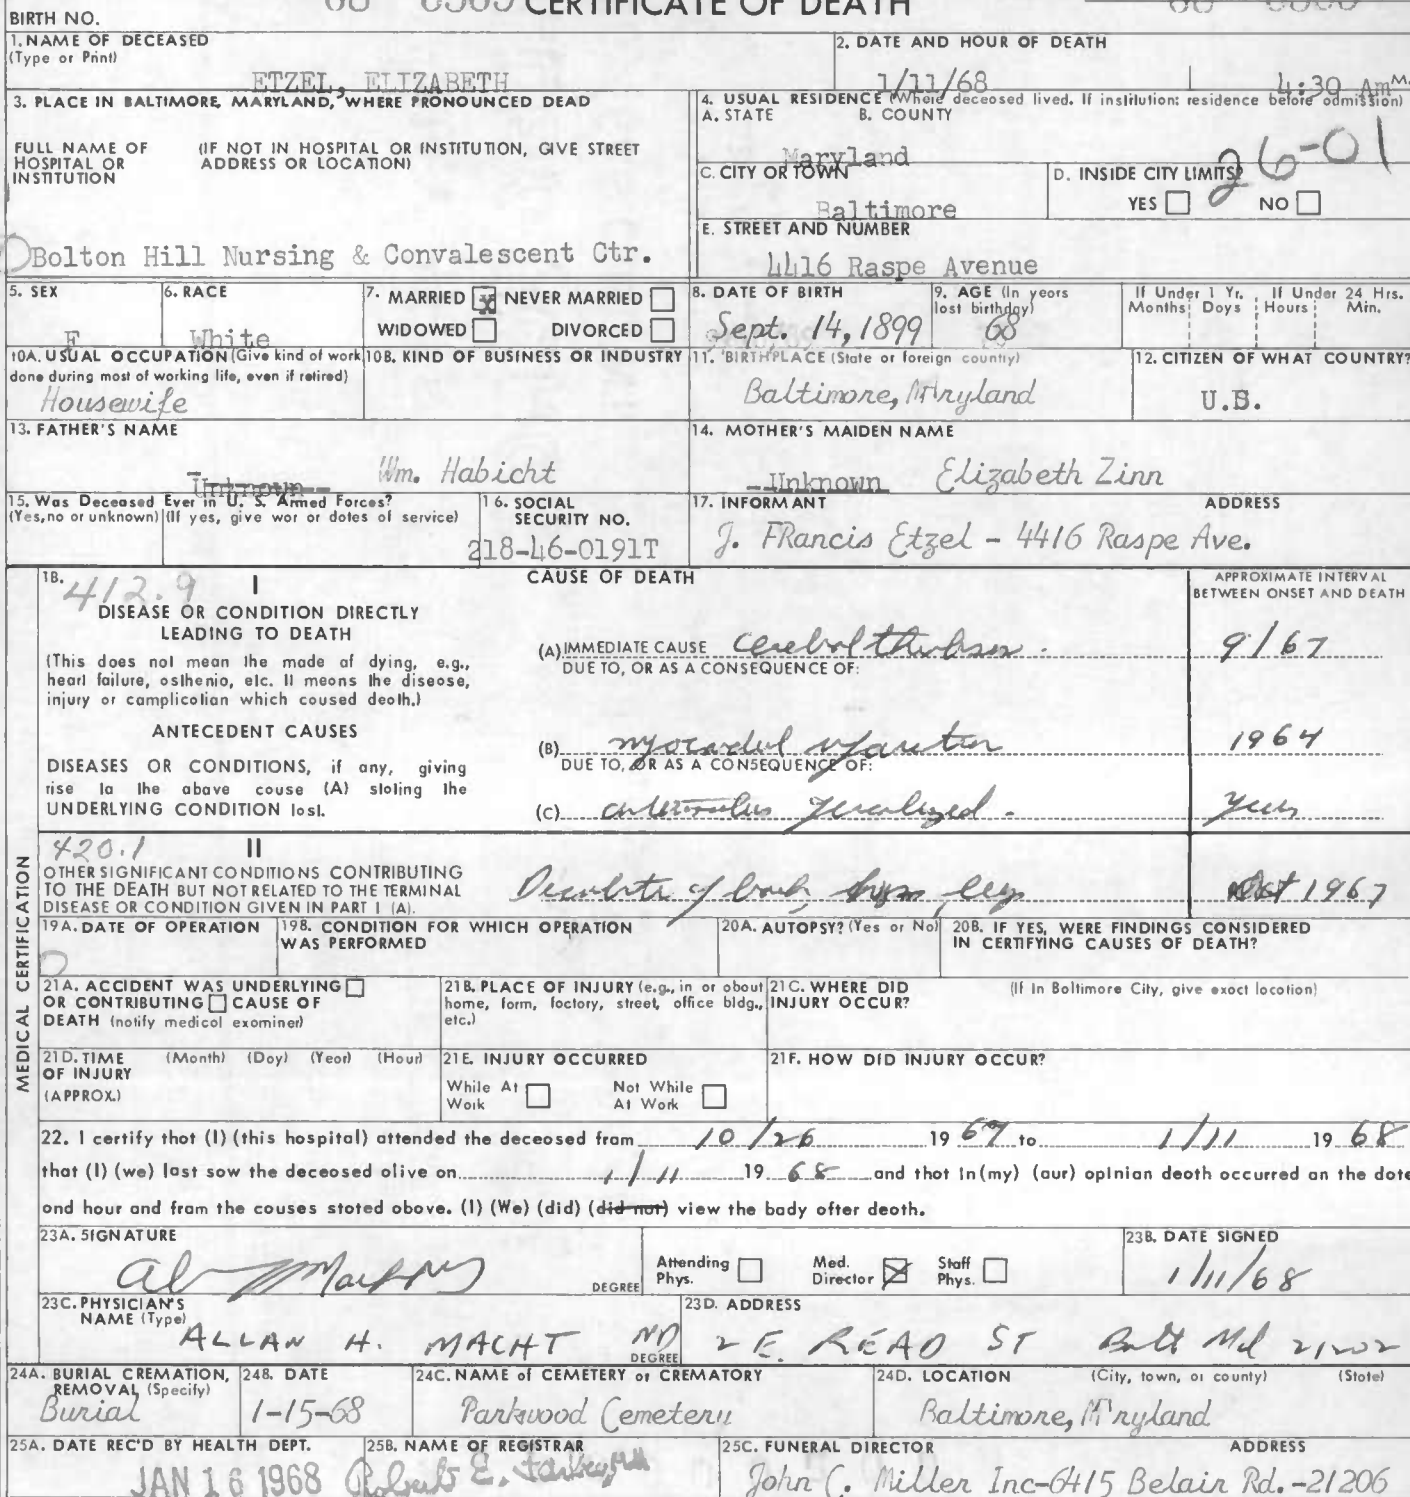 CERTIFICATE OF DEATH
BIRTH NO.
1. NAME OF DECEASED
(Type or Print)
ETZEL, ELIZABETH
2. DATE AND HOUR OF DEATH
1/11/68 4:30 Am M.
3. PLACE IN BALTIMORE, MARYLAND, WHERE PRONOUNCED DEAD
FULL NAME OF HOSPITAL OR INSTITUTION
(IF NOT IN HOSPITAL OR INSTITUTION, GIVE STREET ADDRESS OR LOCATION)
Bolton Hill Nursing & Convalescent Ctr.
4. USUAL RESIDENCE (Where deceased lived. If institution: residence before admission)
A. STATE B. COUNTY
Maryland
26-01
C. CITY OR TOWN
Baltimore
D. INSIDE CITY LIMITS?
YES NO
E. STREET AND NUMBER
4416 Raspe Avenue
5. SEX
F
6. RACE
White
7. MARRIED x NEVER MARRIED
WIDOWED DIVORCED
8. DATE OF BIRTH
Sept. 14, 1899
9. AGE (In years lost birthday)
68
If Under 1 Yr. If Under 24 Hrs.
Months Days Hours Min.
10A. USUAL OCCUPATION (Give kind of work done during most of working life, even if retired)
Housewife
10B. KIND OF BUSINESS OR INDUSTRY
11. BIRTHPLACE (State or foreign country)
Baltimore, Maryland
12. CITIZEN OF WHAT COUNTRY?
U.S.
13. FATHER'S NAME
Unknown Wm. Habicht
14. MOTHER'S MAIDEN NAME
Unknown Elizabeth Zinn
15. Was Deceased Ever in U. S. Armed Forces?
(Yes, no or unknown) (If yes, give wor or dotes of service)
16. SOCIAL SECURITY NO.
218-46-0191T
17. INFORMANT ADDRESS
J. FRancis Etzel - 4416 Raspe Ave.
MEDICAL CERTIFICATION
18. 412.9 I
CAUSE OF DEATH
APPROXIMATE INTERVAL BETWEEN ONSET AND DEATH
DISEASE OR CONDITION DIRECTLY LEADING TO DEATH
(This does not mean the made af dying, e.g., hearl failure, oslhenio, elc. Il meons lhe diseose, injury or camplicolian which coused deolh.)
(A) IMMEDIATE CAUSE cerebral thrombosis. 9/67
DUE TO, OR AS A CONSEQUENCE OF:
ANTECEDENT CAUSES
DISEASES OR CONDITIONS, if any, giving rise la lhe abave couse (A) sloling lhe UNDERLYING CONDITION losl.
(B) myocardial infarction 1964
DUE TO, OR AS A CONSEQUENCE OF:
(C) generalized. years
420.1 II
OTHER SIGNIFICANT CONDITIONS CONTRIBUTING TO THE DEATH BUT NOT RELATED TO THE TERMINAL DISEASE OR CONDITION GIVEN IN PART I (A).
Decubiti of back, legs Oct 1967
19A. DATE OF OPERATION
19B. CONDITION FOR WHICH OPERATION WAS PERFORMED
20A. AUTOPSY? (Yes or No)
20B. IF YES, WERE FINDINGS CONSIDERED IN CERTIFYING CAUSES OF DEATH?
21A. ACCIDENT WAS UNDERLYING OR CONTRIBUTING CAUSE OF DEATH (notify medicol exominer)
21B. PLACE OF INJURY (e.g., in or obout home, form, foctory, street, office bldg., etc.)
21C. WHERE DID INJURY OCCUR?
(If In Boltimore City, give exoct locotion)
21D. TIME OF INJURY (APPROX.)
(Month) (Doy) (Yeor) (Hour)
21E. INJURY OCCURRED
While At Work Not While At Work
21F. HOW DID INJURY OCCUR?
22. I certify thot (I) (this hospital) attended the deceosed fram 10/26 19 67 to 1/11 19 68
that (I) (we) lost sow the deceosed olive on 1/11 19 68 and thot in (my) (aur) opinian death occurred an the dote
ond hour and fram the couses stoted obove. (I) (We) (did) (did not) view the body ofter deoth.
23A. SIGNATURE
DEGREE
Attending Phys. Med. Director X Staff Phys.
23B. DATE SIGNED
1/11/68
23C. PHYSICIAN'S NAME (Type)
ALLAN H. MACHT MD
DEGREE
23D. ADDRESS
2 E. READ ST Balt Md 21202
24A. BURIAL CREMATION, REMOVAL (Specify)
Burial
24B. DATE
1-15-68
24C. NAME of CEMETERY or CREMATORY
Parkwood Cemetery
24D. LOCATION (City, town, or county) (Stote)
Baltimore, Maryland
25A. DATE REC'D BY HEALTH DEPT.
JAN 16 1968
25B. NAME OF REGISTRAR
Robert E. Farber, MD
25C. FUNERAL DIRECTOR ADDRESS
John C. Miller Inc-6415 Belair Rd.-21206